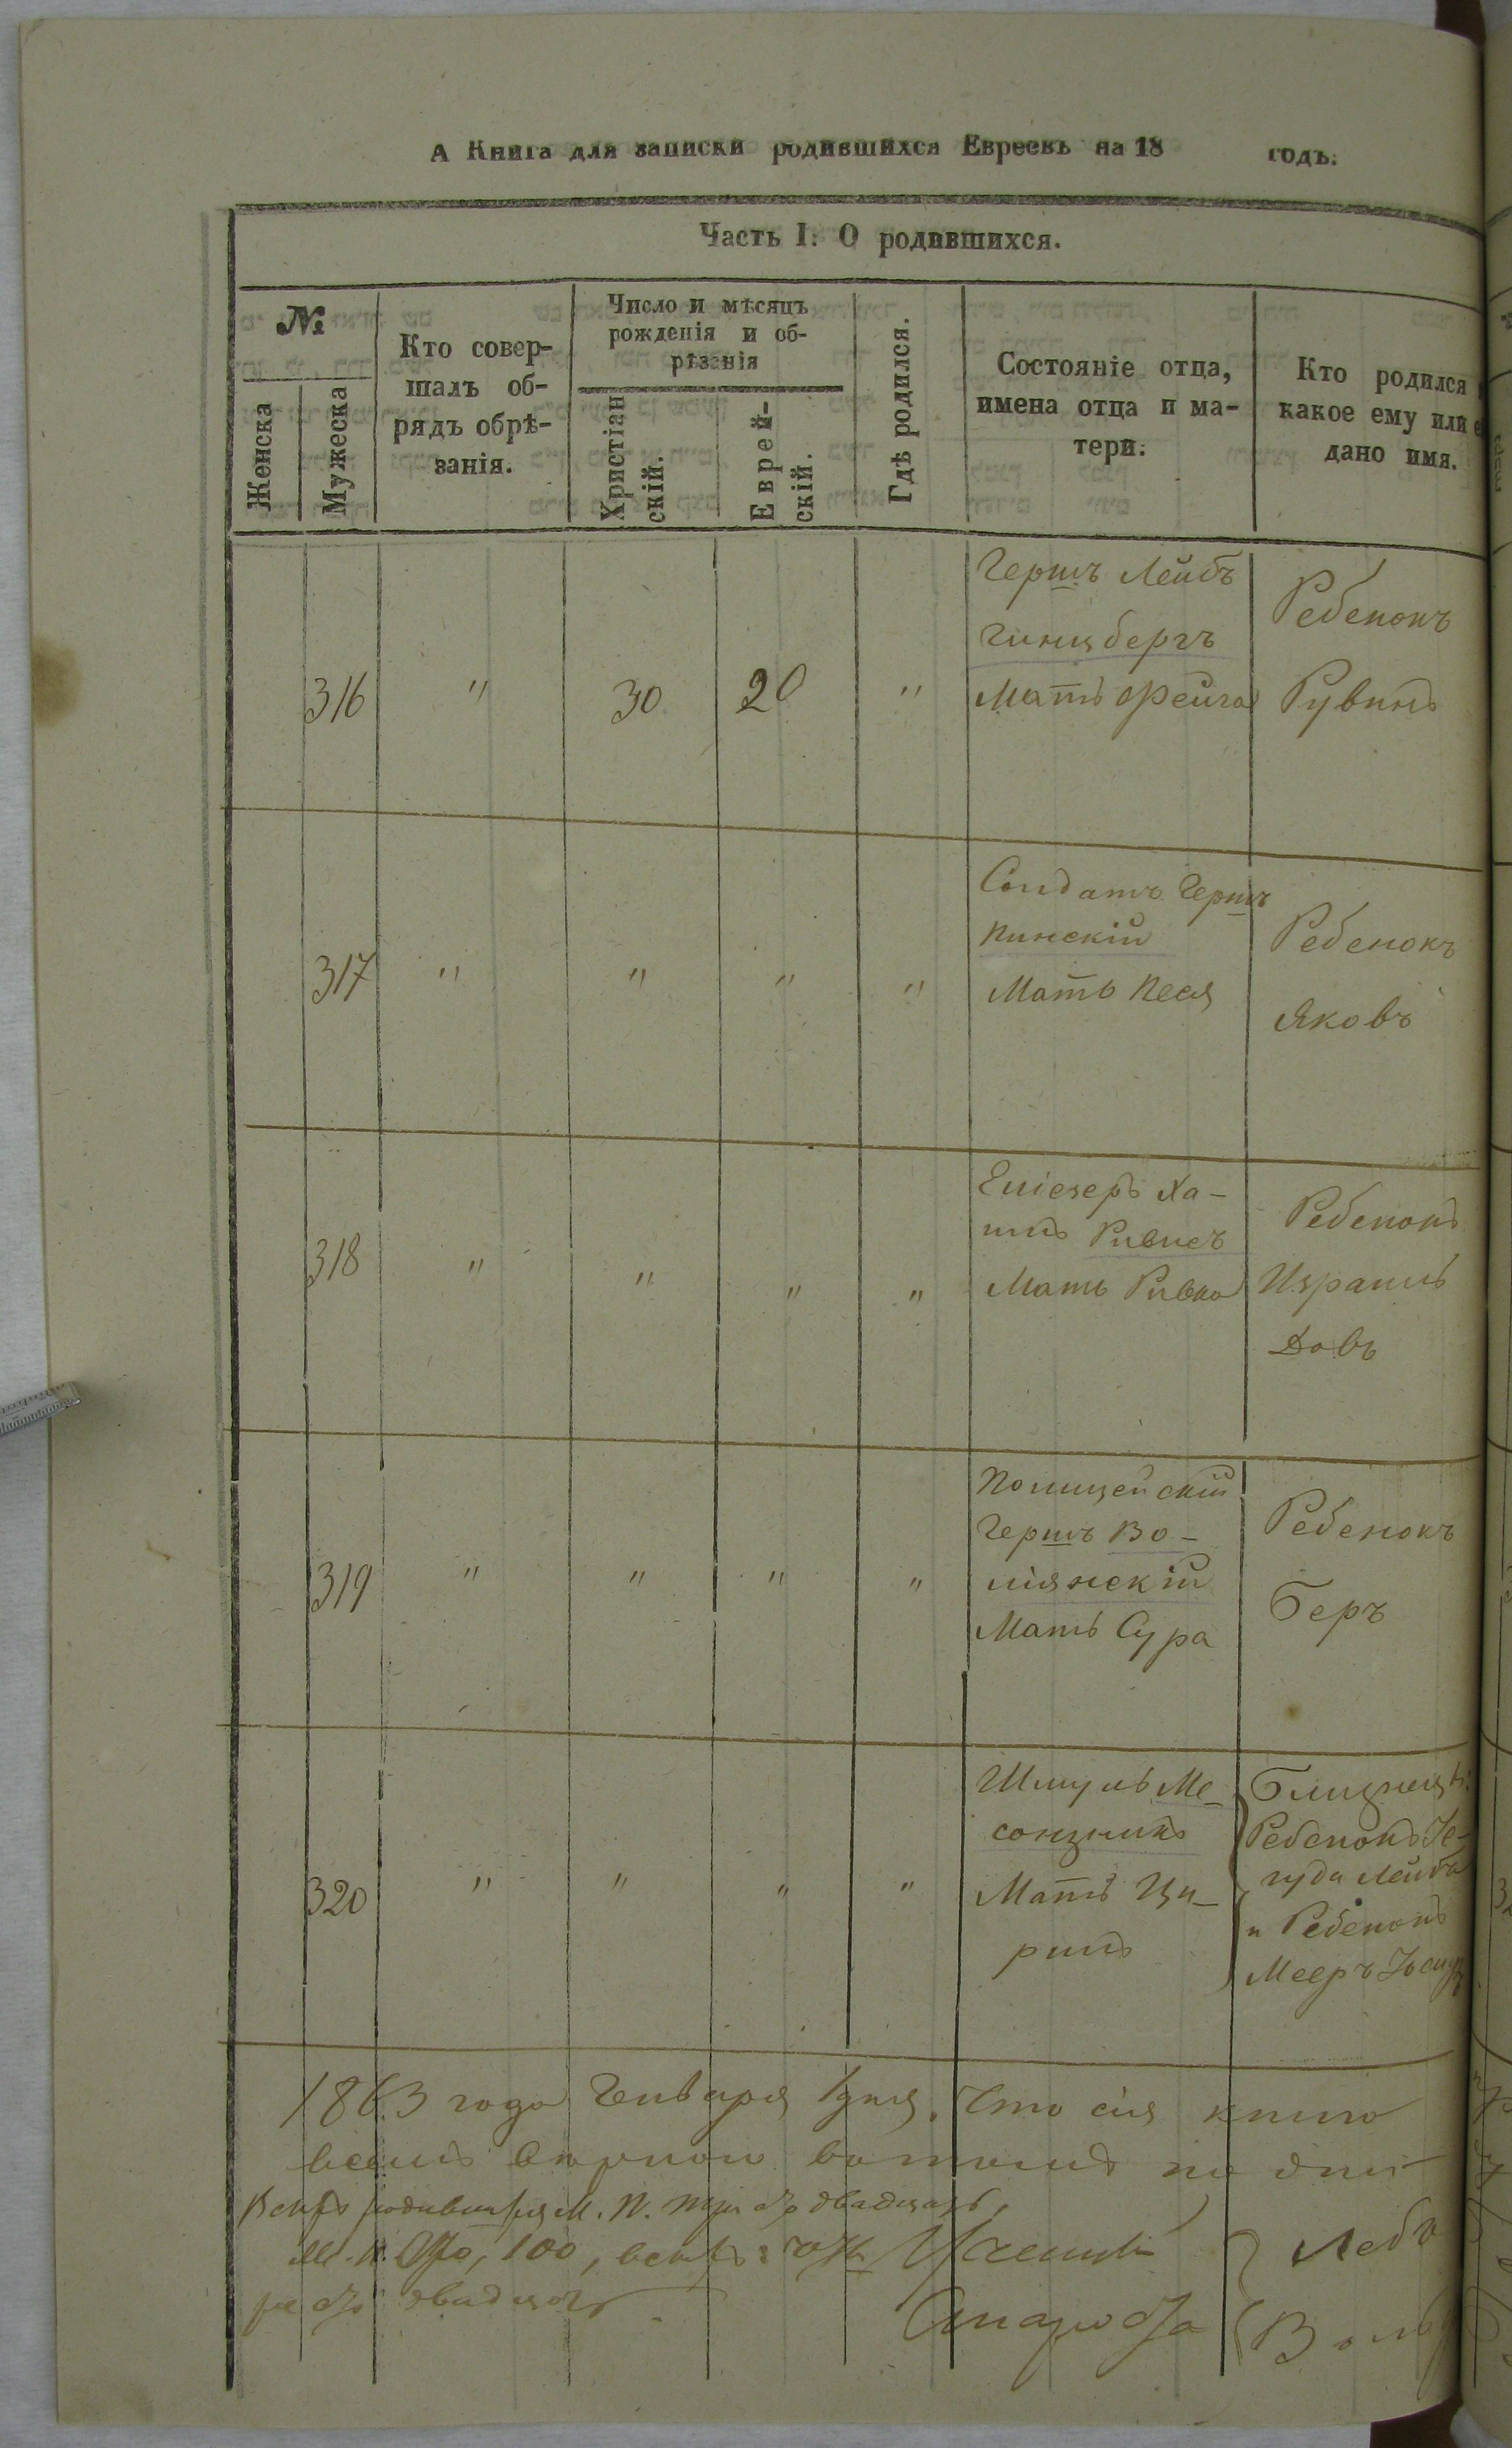 А Книга для записки родившихся Евреевъ на 18 годъ.
Часть I. О родившихся.
№
Женска
Мужеска
Кто совер-
шалъ об-
рядъ обрѣ-
занія.
Число и мѣсяцъ
рожденія и об-
рѣзанія
Христіан
скій.
Еврей-
скій.
Гдѣ родился.
Состояніе отца,
имена отца и ма-
тери.
Кто родился
какое ему или
дано имя.
316 " 30 20 "
Гершъ Лейбъ
Гинцбергъ
Мать Фейга
Ребенокъ
Рувинъ
317 " " " "
Солдатъ Гершъ
Пинскій
Мать Песя
Ребенокъ
Яковъ
318 " " " "
Еліезеръ Ха-
имъ Ривисъ
Мать Ривка
Ребенокъ
Израиль
Довъ
319 " " " "
Полицейскій
Гершъ Во-
лянскій
Мать Сура
Ребенокъ
Беръ
320 " " " "
Шмуль Ме-
сонзникъ
Мать Ци-
рилъ
Близнецы:
Ребенокъ Іе-
гуда Лейба
и Ребенокъ
Мееръ
1863 года Генваря 1 дня. Что сія книга
М. П. три ста двадцать,
100,
двадцать
Староста